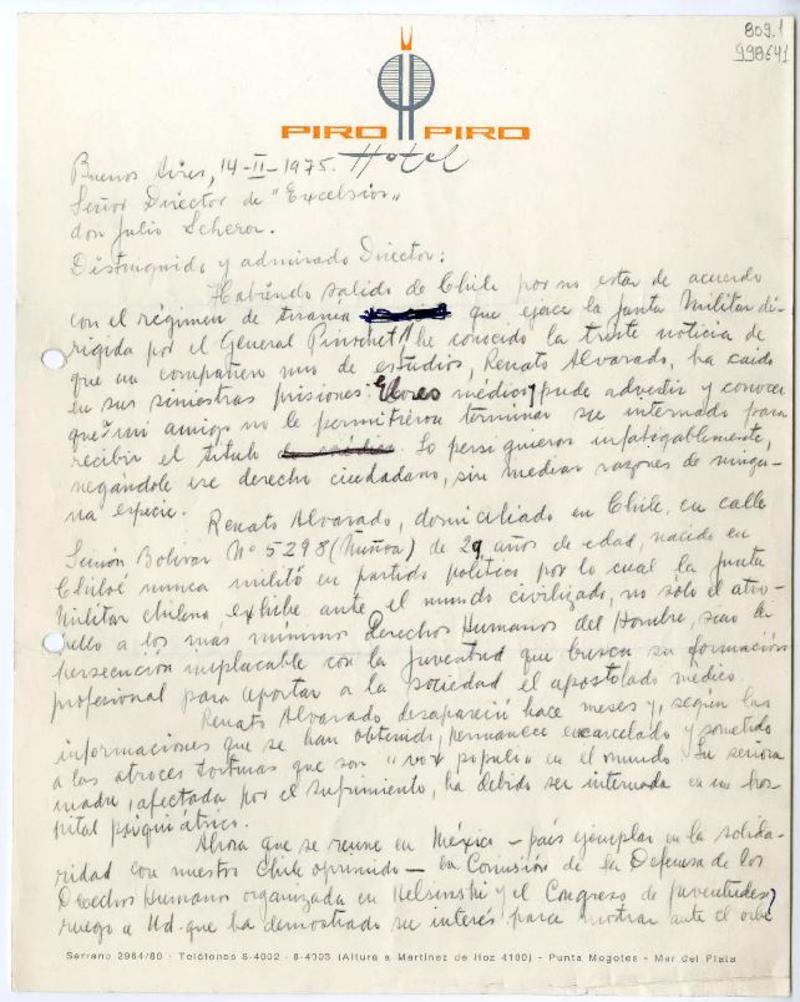 809.1
998641
PIRO PIRO
Hotel
Buenos Aires, 14-II-1975.
Señor Director de "Excelsior"
don Julio Scherer.
Distinguido y admirado Director:
Habiendo salido de Chile por no estar de acuerdo
con el régimen de tiranía que ejerce la Junta Militar di-
rigida por el General Pinochet, he conocido la triste noticia de
que un compañero mio de estudios, Renato Alvarado, ha caído
en sus siniestras prisiones. médicos, pude advertir y conocer
que mi amigo no le permitieron terminar su internado para
recibir el título de médico. Lo persiguieron infatigablemente,
negándole ese derecho ciudadano, sin mediar razones de ningu-
na especie.
Renato Alvarado, domiciliado en Chile, en calle
Simón Bolivar Nº 5298 (Ñuñoa) de 29 años de edad, nacido en
Chiloé nunca militó en partido político por lo cual la Junta
Militar chilena, exhibe ante el mundo civilizado, no sólo el atro-
pello a los mas mínimos Derechos Humanos del Hombre, sino la
persecución implacable con la juventud que busca su formación
profesional para aportar a la sociedad el apostolado médico.
Renato Alvarado desapareció hace meses y, según las
informaciones que se han obtenido, permanece encarcelado y sometido
a las atroces torturas que son "vox populi" en el mundo. Su señora
madre, afectada por el sufrimiento, ha debido ser internada en un hos-
pital psiquiátrico.
Ahora que se reune en México - país ejemplar en la solida-
ridad con nuestro Chile oprimido - la Comisión de la Defensa de los
Derechos Humanos organizada en Helsinski y el Congreso de Juventudes,
ruego a Ud. que ha demostrado su interés para mostrar ante el orbe
Serrano 2964/80 - Teléfonos 8-4002 - 8-4003 (Altura a Martínez de Hoz 4100) - Punta Mogotes - Mar del Plata